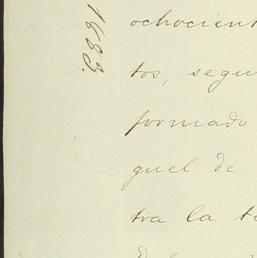 ochocient
tos, segu
formado
guel de
tra la te